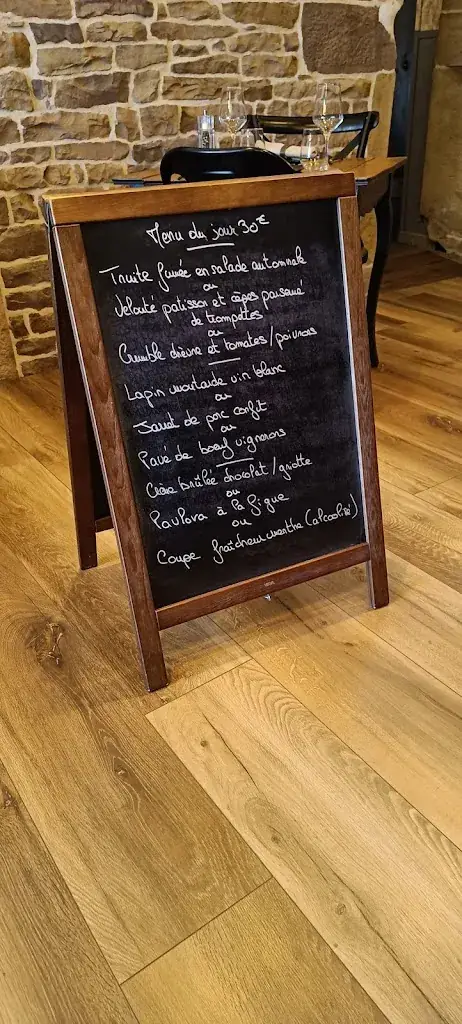 Menu du jour 30€
Truite fumée en salade automnale
ou
Velouté patisson et cèpes parsemé
de trompettes
ou
Crumble chèvre et tomates/poivrons
Lapin moutarde vin blanc
ou
Sauté de porc confit
ou
Pavé de boeuf vignerons
Crème brûlée chocolat/griotte
ou
Pavlova à la figue
ou
Coupe fraîcheur menthe (alcoolisé)